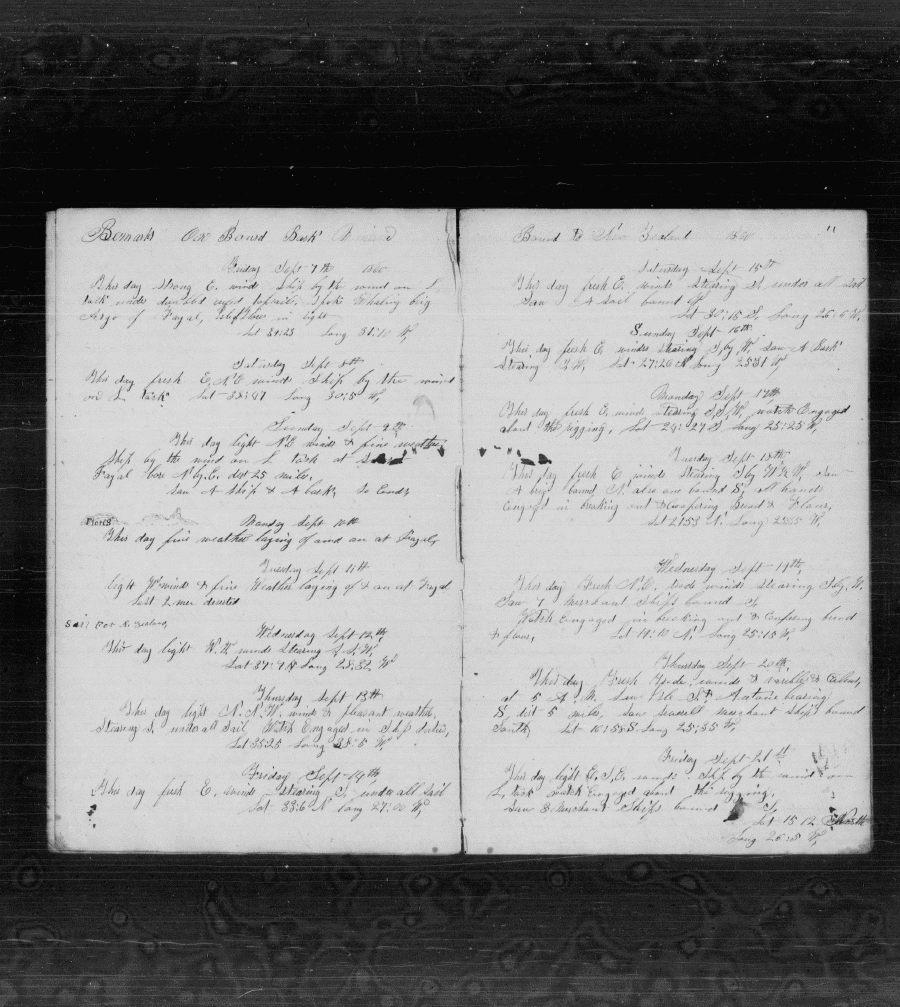 Remarks On Board Bark
Friday Sept 7th 1860
This day strong E. winds Ship by the wind on L
tack under double reef topsails. Spoke Whaling brig
Argo of Fayal, in light
Lat 39:23 Long 31:10 W,
Saturday Sept 8th
This day fresh E.N.E winds Ship by the wind
on L tack Lat 38:47 Long 30:5 W,
Sunday Sept 9th
This day light N.E winds & fine weather
Ship by the wind on L tack at
Fayal bore N by E. dist 25 miles,
saw A ship & A bark, So Ends,
Monday Sept 10th
This day fine weather laying of and on at Fayal,
Tuesday Sept 11th
light W winds & fine Weather laying of & on at Fayal
Last 2 men deserted
Sail For N. Zeeland,
Wednesday Sept 12th,
This day light W. winds Stearing S.S.W,
Lat 37:9 N Long 28:32 W
Thursday Sept 13th
This day light N.N.W. winds & pleasant weather,
Stearing S. under all Sail, Watch Engaged in Ship duties,
Lat 35:25 Long 28:5 W,
Friday Sept 14th,
This day fresh E. winds stearing S. under all Sail
Lat 33:6 N Long 27:00 W,
Bound to New Zealand 1860
11
Saturday Sept 15th
This day fresh E. winds Stearing S, under all Sail
Saw A Sail bound
Lat 30:15 Long 26:6 W,
Sunday Sept 16th
This day fresh E. winds stearing S by W. saw A Bark
Stearing Lat 27:26 N Long 25:31 W
Monday Sept 17th
This day fresh E. wind stearing S.S.W, watch Engaged
about the rigging. Lat 24:27 Long 25:25 W,
Tuesday Sept 18th
This day fresh E. winds stearing S by W ½ W, Saw
A brig bound N. also one bound S, all hands
Engaged in breaking out & Coopering Bread & Flour,
Lat 21:53 N. Long 25:55 W,
Wednesday Sept 19th,
This day Fresh N.E. trade winds Stearing S by W.
Saw 7 Merchant Ships bound S,
Watch Engaged in breaking out & Coopering bread
& flour, Lat 19:10 N. Long 25:15 W,
Thursday Sept 20th,
This day Fresh Trade winds &
at 5 A.M. saw Isle St Antonio bearing
S. dist 5 miles, saw several merchant ships bound
South, Lat 16:58 Long 25:35 W,
Friday Sept 21st
This day light E.S.E. winds, Ship by the wind on
L tack watch Engaged about the rigging,
Saw 8 Merchant Ships bound S,
Lat 15:12 North
Long 26:08 W,